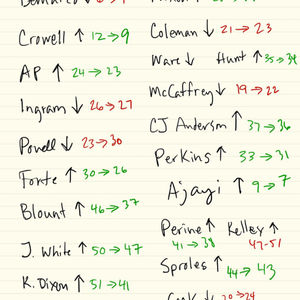 Crowell ↑ 12→9
AP ↑ 24→23
Ingram ↓ 26→27
Powell ↓ 23→30
Forte ↑ 30→26
Blount ↑ 46→37
J. White ↑ 50→47
K. Dixon ↑ 51→41
Coleman ↓ 21→23
Ware ↓ Hunt ↑ 35→34
McCaffrey ↓ 19→22
CJ Anderson ↑ 37→36
Perkins ↑ 33→31
Ajayi ↑ 9→7
Perine ↑ Kelley ↑
41→38 47-51
Sproles ↑ 44→43
20→24